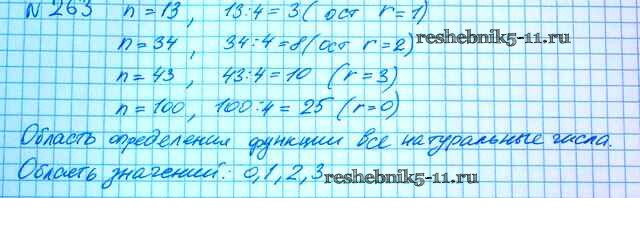 N 263 n = 13, 13:4 = 3 ( ост r = 1)
n = 34, 34:4 = 8 (ост r = 2) reshebnik5-11.ru
n = 43, 43:4 = 10 (r = 3)
n = 100, 100:4 = 25 (r = 0)
Область определения функции все натуральные числа.
Область значений: 0,1,2,3 reshebnik5-11.ru